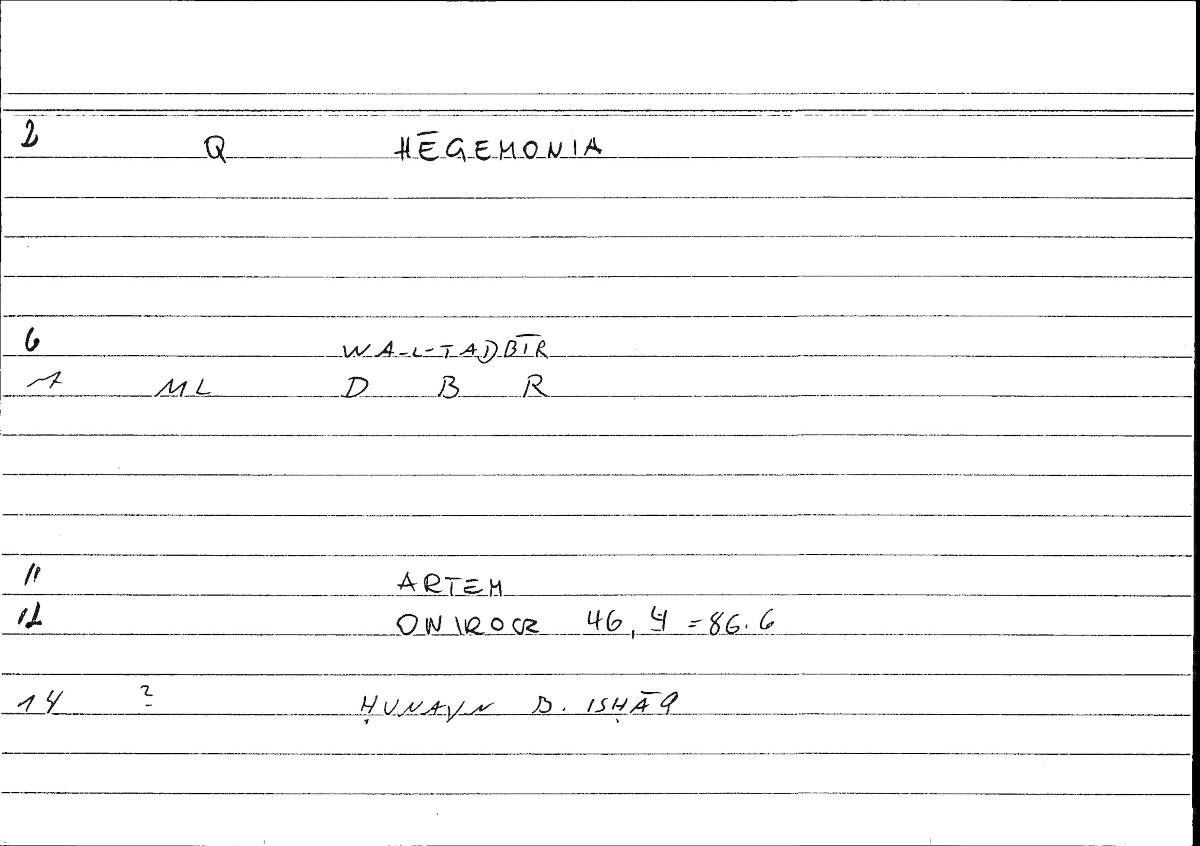 2 Q HĒGEMONIA
6 WA-L-TADBĪR
7 ML D B R
11 ARTEM
12 ONIROCR 46, 4 = 86.6
14 ? ḤUNAYN B. ISḤĀQ